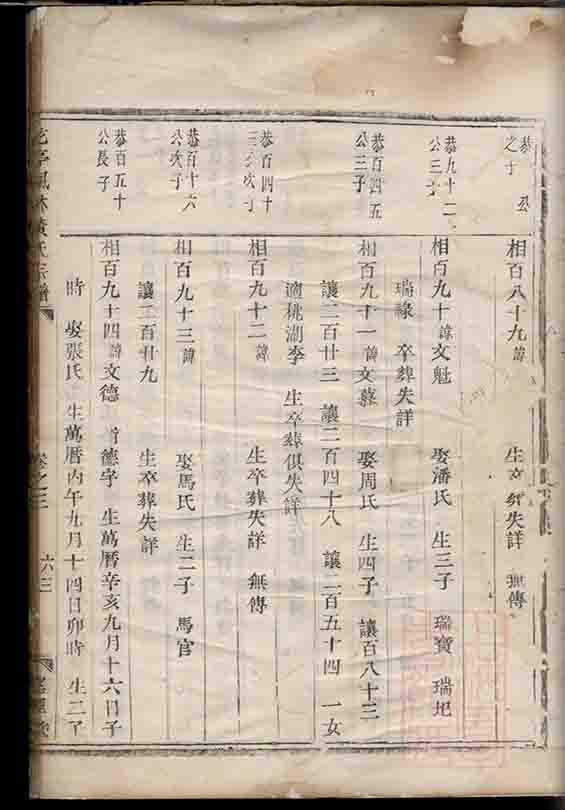 恭 公
之子
相百八十九諱 生卒葬失詳 無傳
恭九十二
公三子
相百九十諱文魁 娶潘氏 生三子 瑞寶 瑞圯
瑞祿 卒葬失詳
恭百四五
公三子
相百九十一諱文 娶周氏 生四子 讓百八十三
讓二百廿三 讓二百四十八 讓二百五十四 一女
適桃湖李 生卒葬俱失詳
恭百四十
三公次子
相百九十二諱 生卒葬失詳 無傳
恭百十六
公次子
相百九十三諱 娶馬氏 生二子 馬官
讓二百廿九 生卒葬失詳
恭百五十
公長子
相百九十四諱文德 行德宇 生萬曆辛亥九月十六日子
時 娶張氏 生萬曆丙午九月十四日卯時 生二子
黃氏宗譜 卷之三 六三